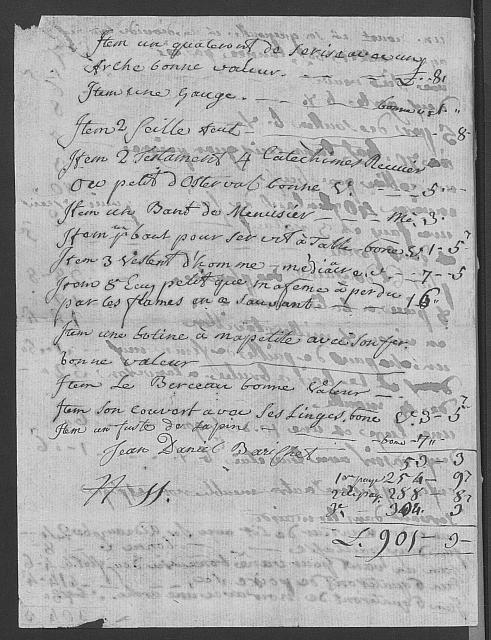 Item un quateront de serise avec un
Arche bonne valeur. — — — L. — 8"
Item une Gauge. — — bonne
Item 2 Seille — 8 —
Item 2 Testament 4 Catechimes
ou petit d'Osterval bonne V. — 5
Item un Banc de Menusier — — Me. 3.
Item baut pour servit à Table bone V. 1 — 5
Item 3 Vestent d'homme — mediacre V — 7 — 5
Item 8 Ecus petit que ma feme à perdu
par les flames en ce sauvant — — 16"
Item une botine à ma petite avec son fer
bonne valeur
Item Le Berceau bonne Valeur —
Item son couvert avec ses Linges, bone V. 3 — 5
Item un fuste de Lapine — bone "7"
Jean Daniel
53 — 3
1re page 254 — 9
2de pag. 288 8
3e 304. 9
L. 901 — 9 —